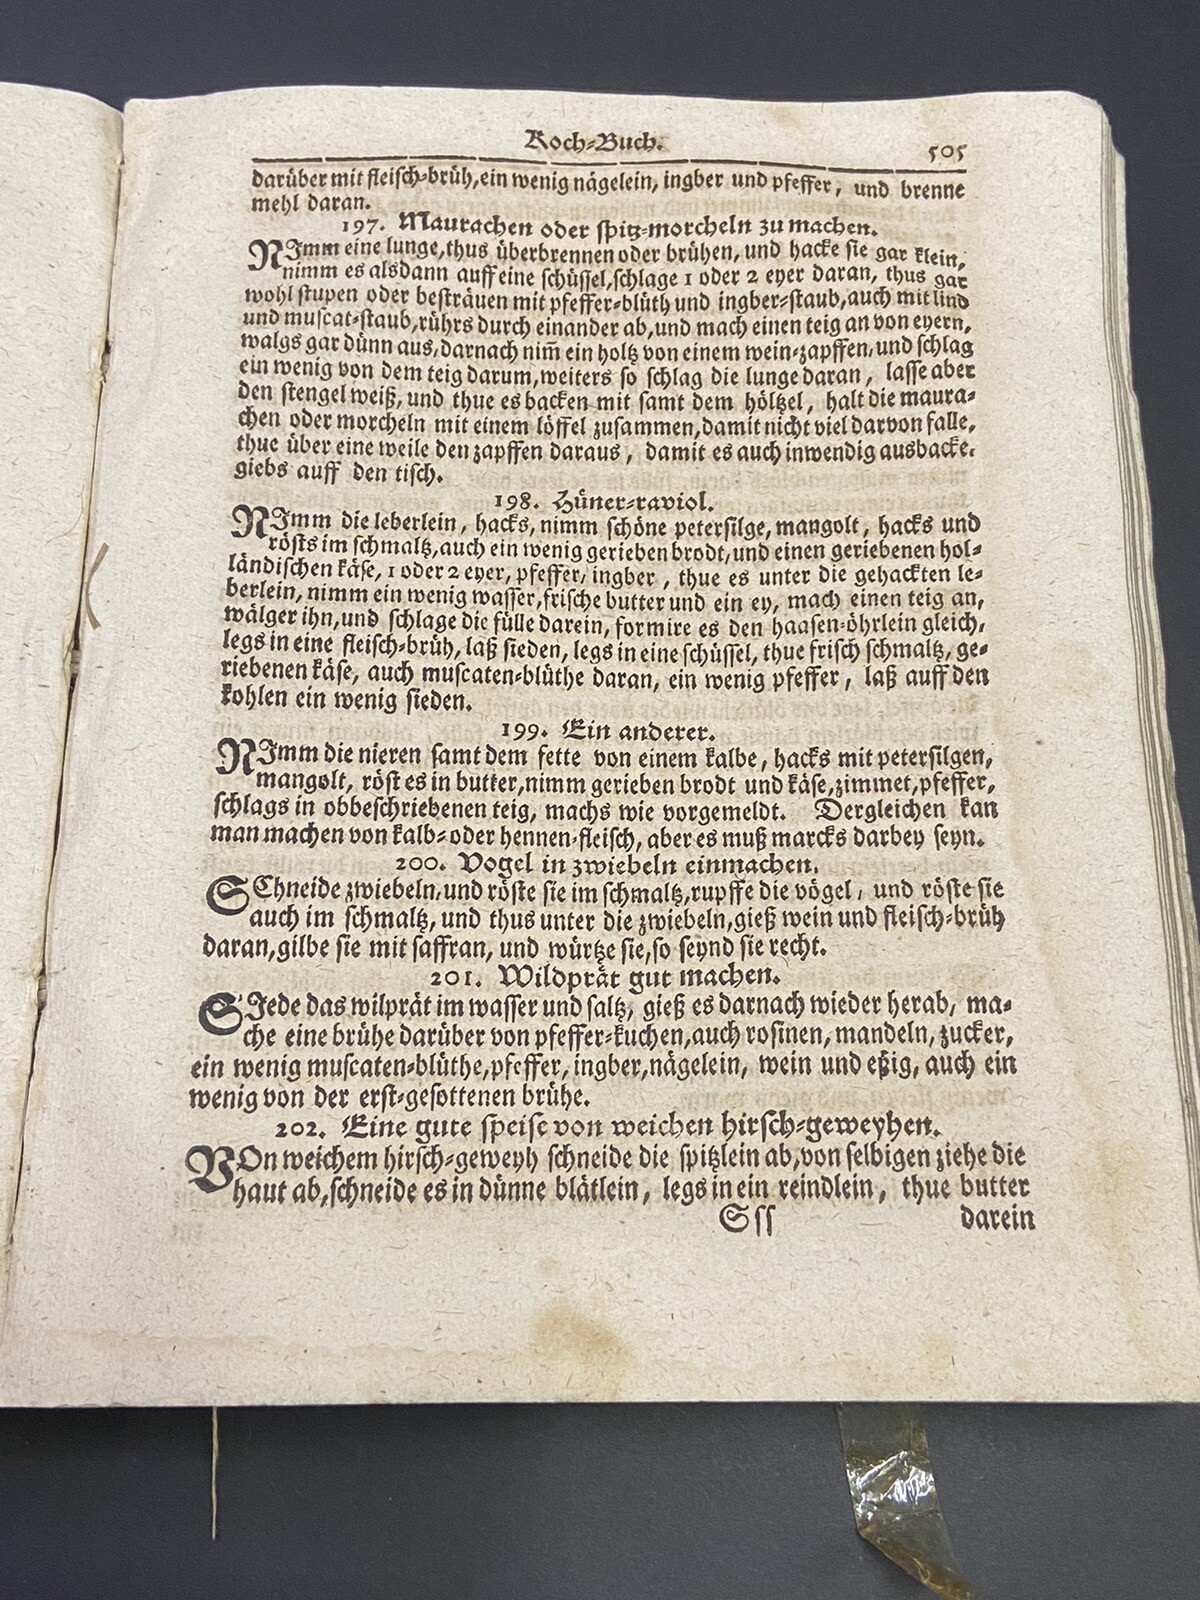 Koch-Buch.
505
darüber mit fleisch-brüh, ein wenig nägelein, ingber und pfeffer, und brenne
mehl daran.
197. Maurachen oder spitz-morcheln zu machen.
NImm eine lunge, thus überbrennen oder brühen, und hacke sie gar klein,
nimm es alsdann auff eine schüssel, schlage 1 oder 2 eyer daran, thus gar
wohl stupen oder besträuen mit pfeffer-blüth und ingber-staub, auch mit lind
und muscat-staub, rührs durch einander ab, und mach einen teig an von eyern,
walgs gar dünn aus, darnach nim̃ ein holtz von einem wein-zapffen, und schlag
ein wenig von dem teig darum, weiters so schlag die lunge daran, lasse aber
den stengel weiß, und thue es backen mit samt dem höltzel, halt die maura-
chen oder morcheln mit einem löffel zusammen, damit nicht viel darvon falle,
thue über eine weile den zapffen daraus, damit es auch inwendig ausbacke.
giebs auff den tisch.
198. Hüner-raviol.
NImm die leberlein, hacks, nimm schöne petersilge, mangolt, hacks und
rösts im schmaltz, auch ein wenig gerieben brodt, und einen geriebenen hol-
ländischen käse, 1 oder 2 eyer, pfeffer, ingber, thue es unter die gehackten le-
berlein, nimm ein wenig wasser, frische butter und ein ey, mach einen teig an,
wälger ihn, und schlage die fülle darein, formire es den haasen-öhrlein gleich,
legs in eine fleisch-brüh, laß sieden, legs in eine schüssel, thue frisch schmaltz, ge-
riebenen käse, auch muscaten-blüthe daran, ein wenig pfeffer, laß auff den
kohlen ein wenig sieden.
199. Ein anderer.
NImm die nieren samt dem fette von einem kalbe, hacks mit petersilgen,
mangolt, röst es in butter, nimm gerieben brodt und käse, zimmet, pfeffer,
schlags in obbeschriebenen teig, machs wie vorgemeldt. Dergleichen kan
man machen von kalb- oder hennen-fleisch, aber es muß marcks darbey seyn.
200. Vogel in zwiebeln einmachen.
SChneide zwiebeln, und röste sie im schmaltz, rupffe die vögel, und röste sie
auch im schmaltz, und thus unter die zwiebeln, gieß wein und fleisch-brüh
daran, gilbe sie mit saffran, und würtze sie, so seynd sie recht.
201. Wildprät gut machen.
SIede das wilprät im wasser und saltz, gieß es darnach wieder herab, ma-
che eine brühe darüber von pfeffer-kuchen, auch rosinen, mandeln, zucker,
ein wenig muscaten-blüthe, pfeffer, ingber, nägelein, wein und eßig, auch ein
wenig von der erst-gesottenen brühe.
202. Eine gute speise von weichen hirsch-geweyhen.
VOn weichem hirsch-geweyh schneide die spitzlein ab, von selbigen ziehe die
haut ab, schneide es in dünne blätlein, legs in ein reindlein, thue butter
Sss
darein